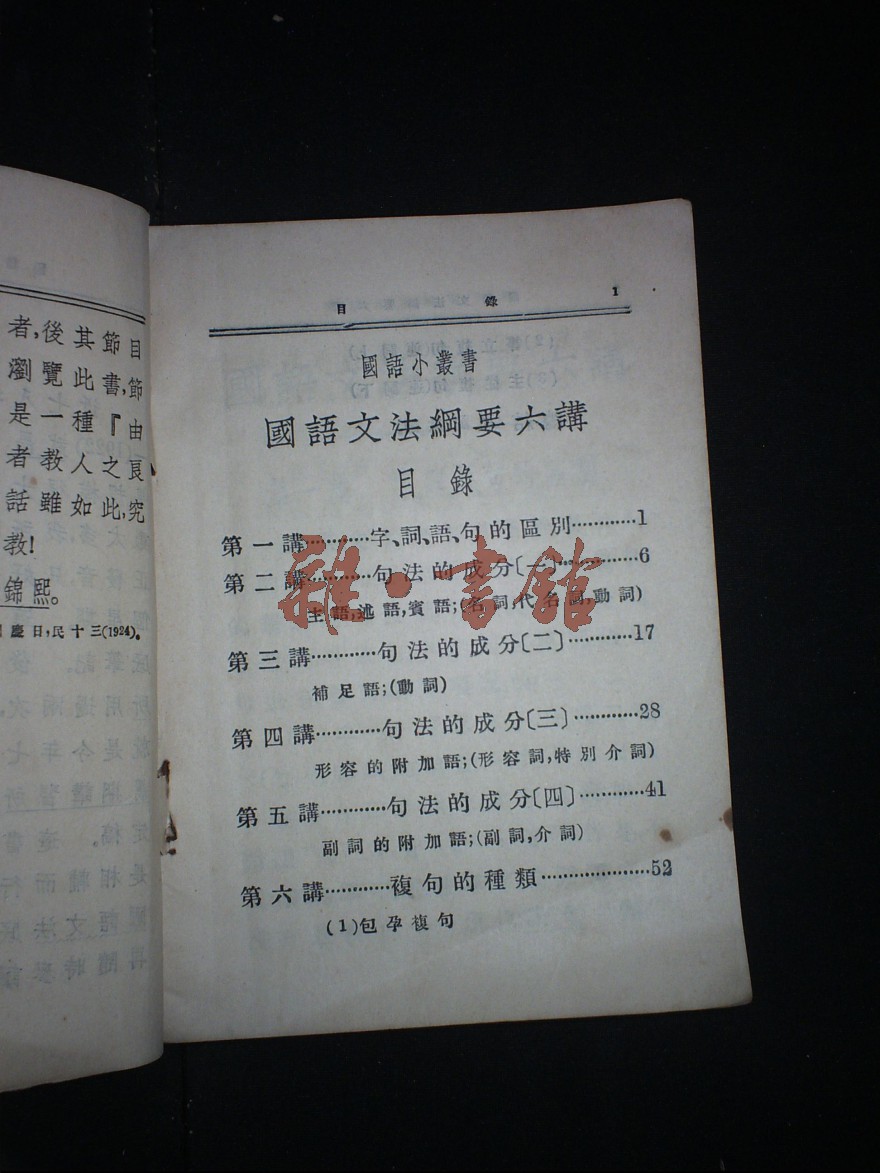 者,瀏是者話教!
後覽一教雖
其此種人如
節書,『之此,
目節由良究
錦熙。
慶日,民十三(1924)。
目錄 1
國語小叢書
國語文法綱要六講
目錄
第一講············字、詞、語、句的區別············1
第二講············句法的成分〔一〕············6
主語,述語,賓語;(名詞,代名詞,動詞)
第三講············句法的成分〔二〕············17
補足語;(動詞)
第四講············句法的成分〔三〕············28
形容的附加語;(形容詞,特別介詞)
第五講············句法的成分〔四〕············41
副詞的附加語;(副詞,介詞)
第六講············複句的種類····················52
(1)包孕複句
雜·書館